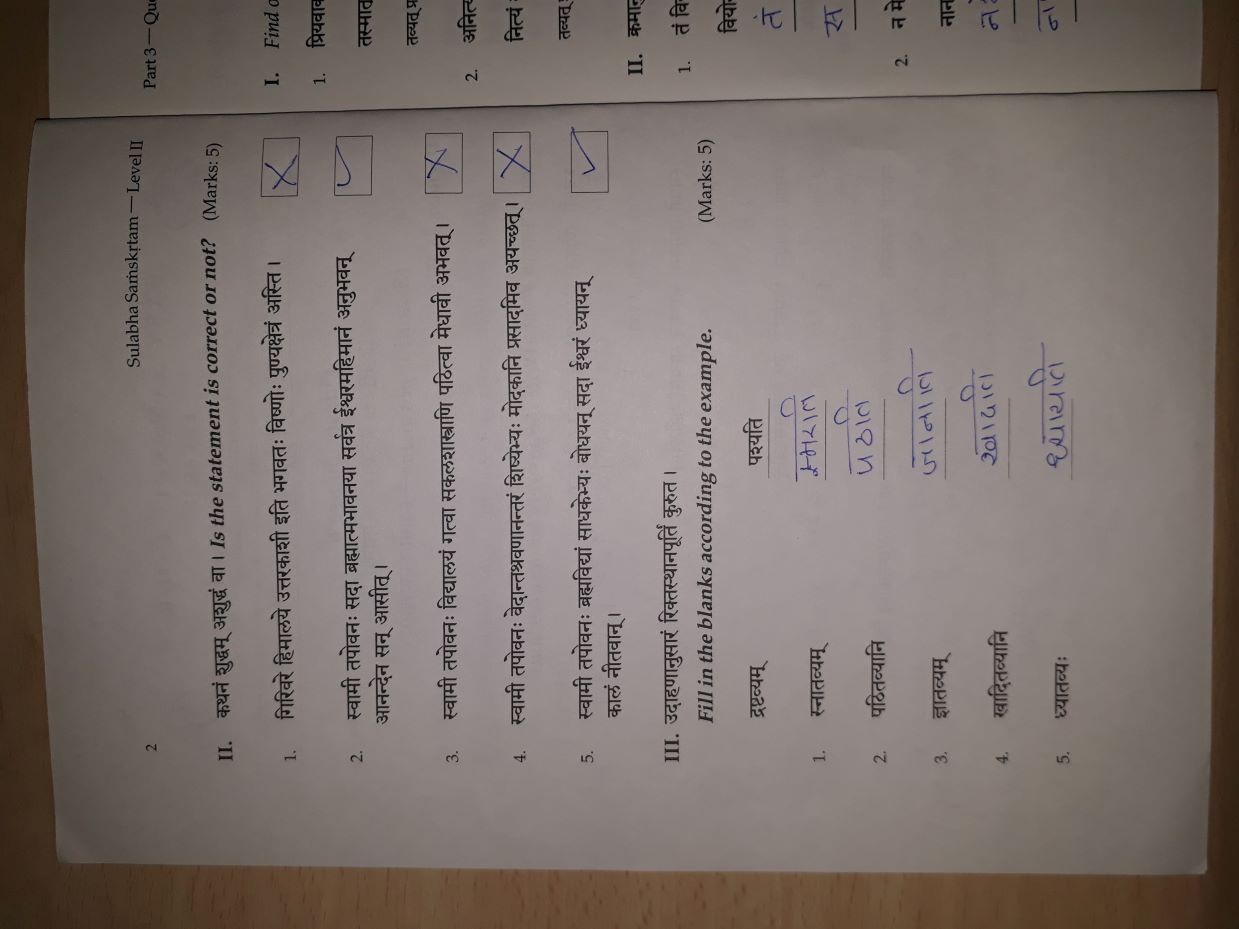 2
Sulabha Saṁskṛtam — Level II
II. कथनं शुद्धम् अशुद्धं वा । Is the statement is correct or not? (Marks: 5)
1. गिरिवरे हिमालये उत्तरकाशी इति भगवतः विष्णोः पुण्यक्षेत्रं अस्ति ।
2. स्वामी तपोवनः सदा ब्रह्मात्मभावनया सर्वत्र ईश्वरमहिमानं अनुभवन्
आनन्देन सन् आसीत् ।
3. स्वामी तपोवनः विद्यालयं गत्वा सकलशास्त्राणि पठित्वा मेधावी अभवत् ।
4. स्वामी तपोवनः वेदान्तश्रवणानन्तरं शिष्येभ्यः मोदकानि प्रसादमिव अयच्छत् ।
5. स्वामी तपोवनः ब्रह्मविद्यां साधकेभ्यः बोधयन् सदा ईश्वरं ध्यायन्
कालं नीतवान् ।
III. उदाहणानुसारं रिक्तस्थानपूर्तिं कुरुत ।
Fill in the blanks according to the example. (Marks: 5)
द्रष्टव्यम् पश्यति
1. स्नातव्यम् स्मरति
2. पठितव्यानि पठति
3. ज्ञातव्यम् जानाति
4. खादितव्यानि खादति
5. ध्यातव्यः ध्यायति
Part 3 —
I. Find
1.
2.
II.
1. तं
तं
स
2. न मे